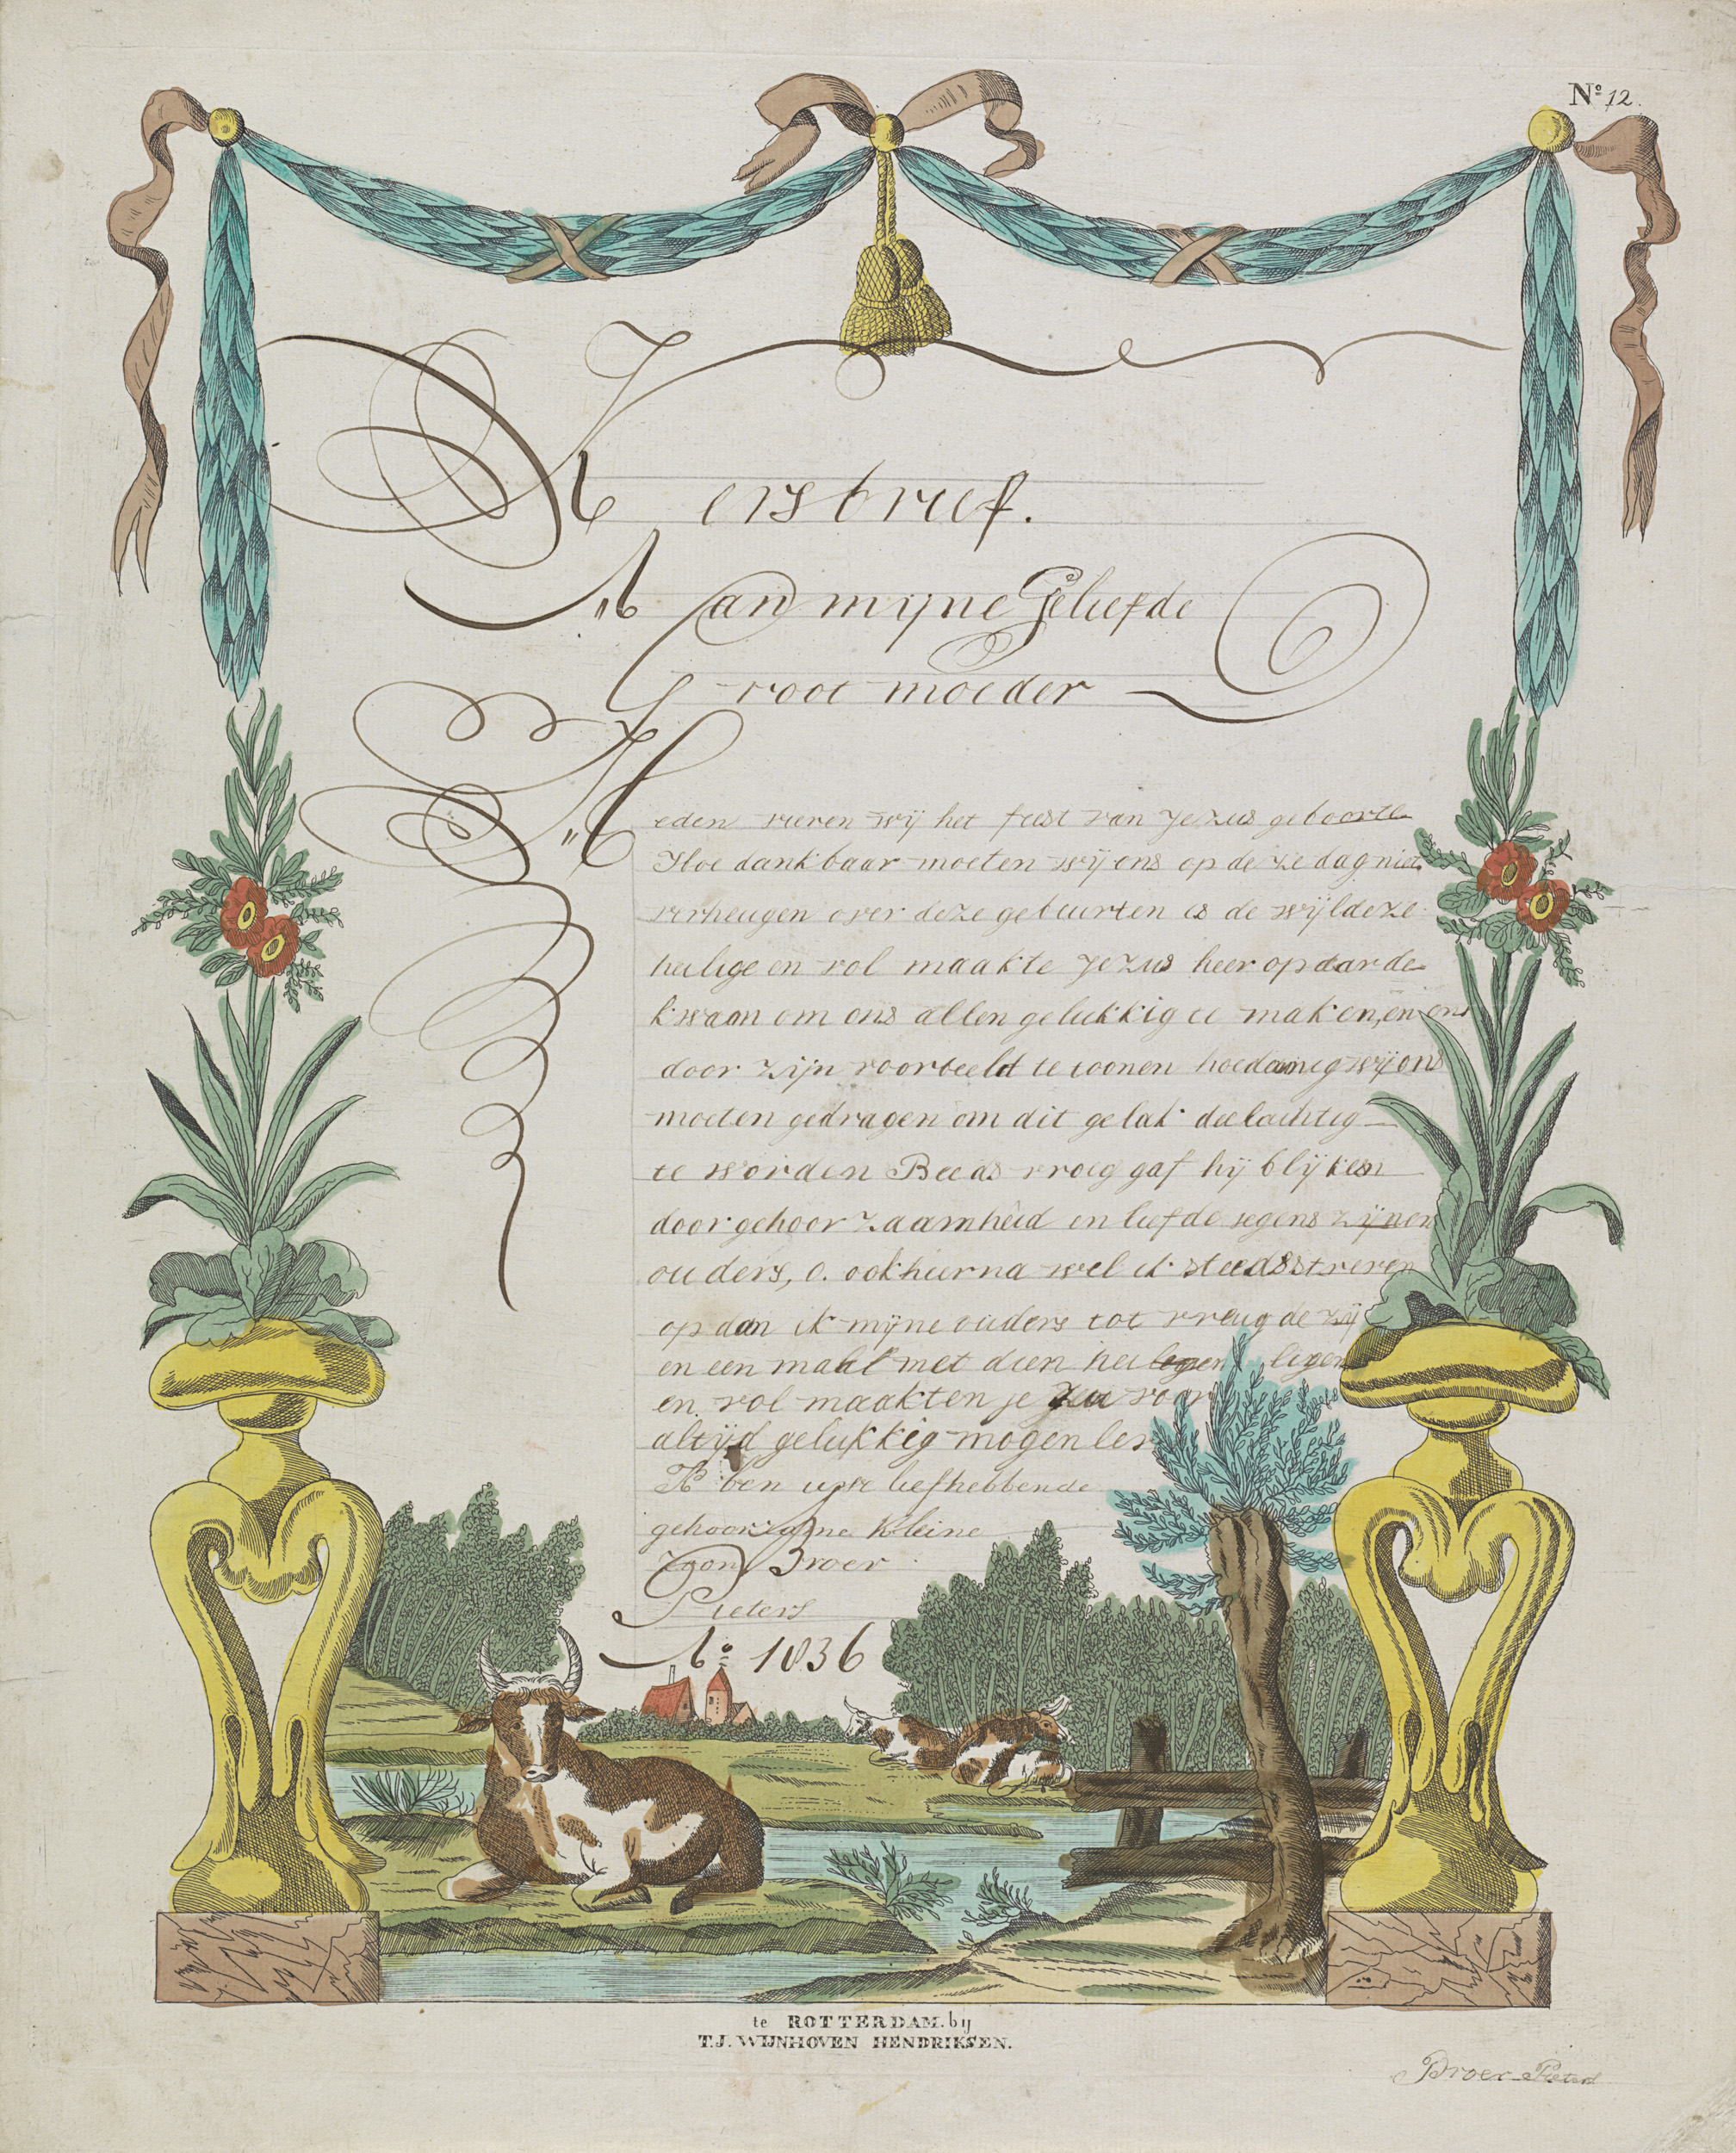 No 12.
Kersbrief.
Aan mijne Geliefde
Groot moeder
Heden vieren wij het feest van Jezus geboorte
Hoe dankbaar moeten wij ons op deze dag niet
verheugen over deze gebeurten is de wijl deze
heilige en vol maakte Jezus heer op aarde
kwam om ons allen gelukkig te maken, en ons
door zijn voorbeeld te toonen hoedanig wij ons
moeten gedragen om dit geluk deelachtig
te worden Reeds vroeg gaf hij blijken
door gehoorzaamheid en liefde tegens zijnen
ouders, o. ook hierna wel ik steeds streven
op dan ik mijne ouders tot vreugde zij
en een maal met dien heilegen
en vol maakten je voor
altijd gelukkig mogen lev
Ik ben uwe liefhebbende
gehoorzame kleine
zoon Broer
Pieters
Ao 1836
te ROTTERDAM. bij
T.J. WIJNHOVEN HENDRIKSEN.
Broer Pieters